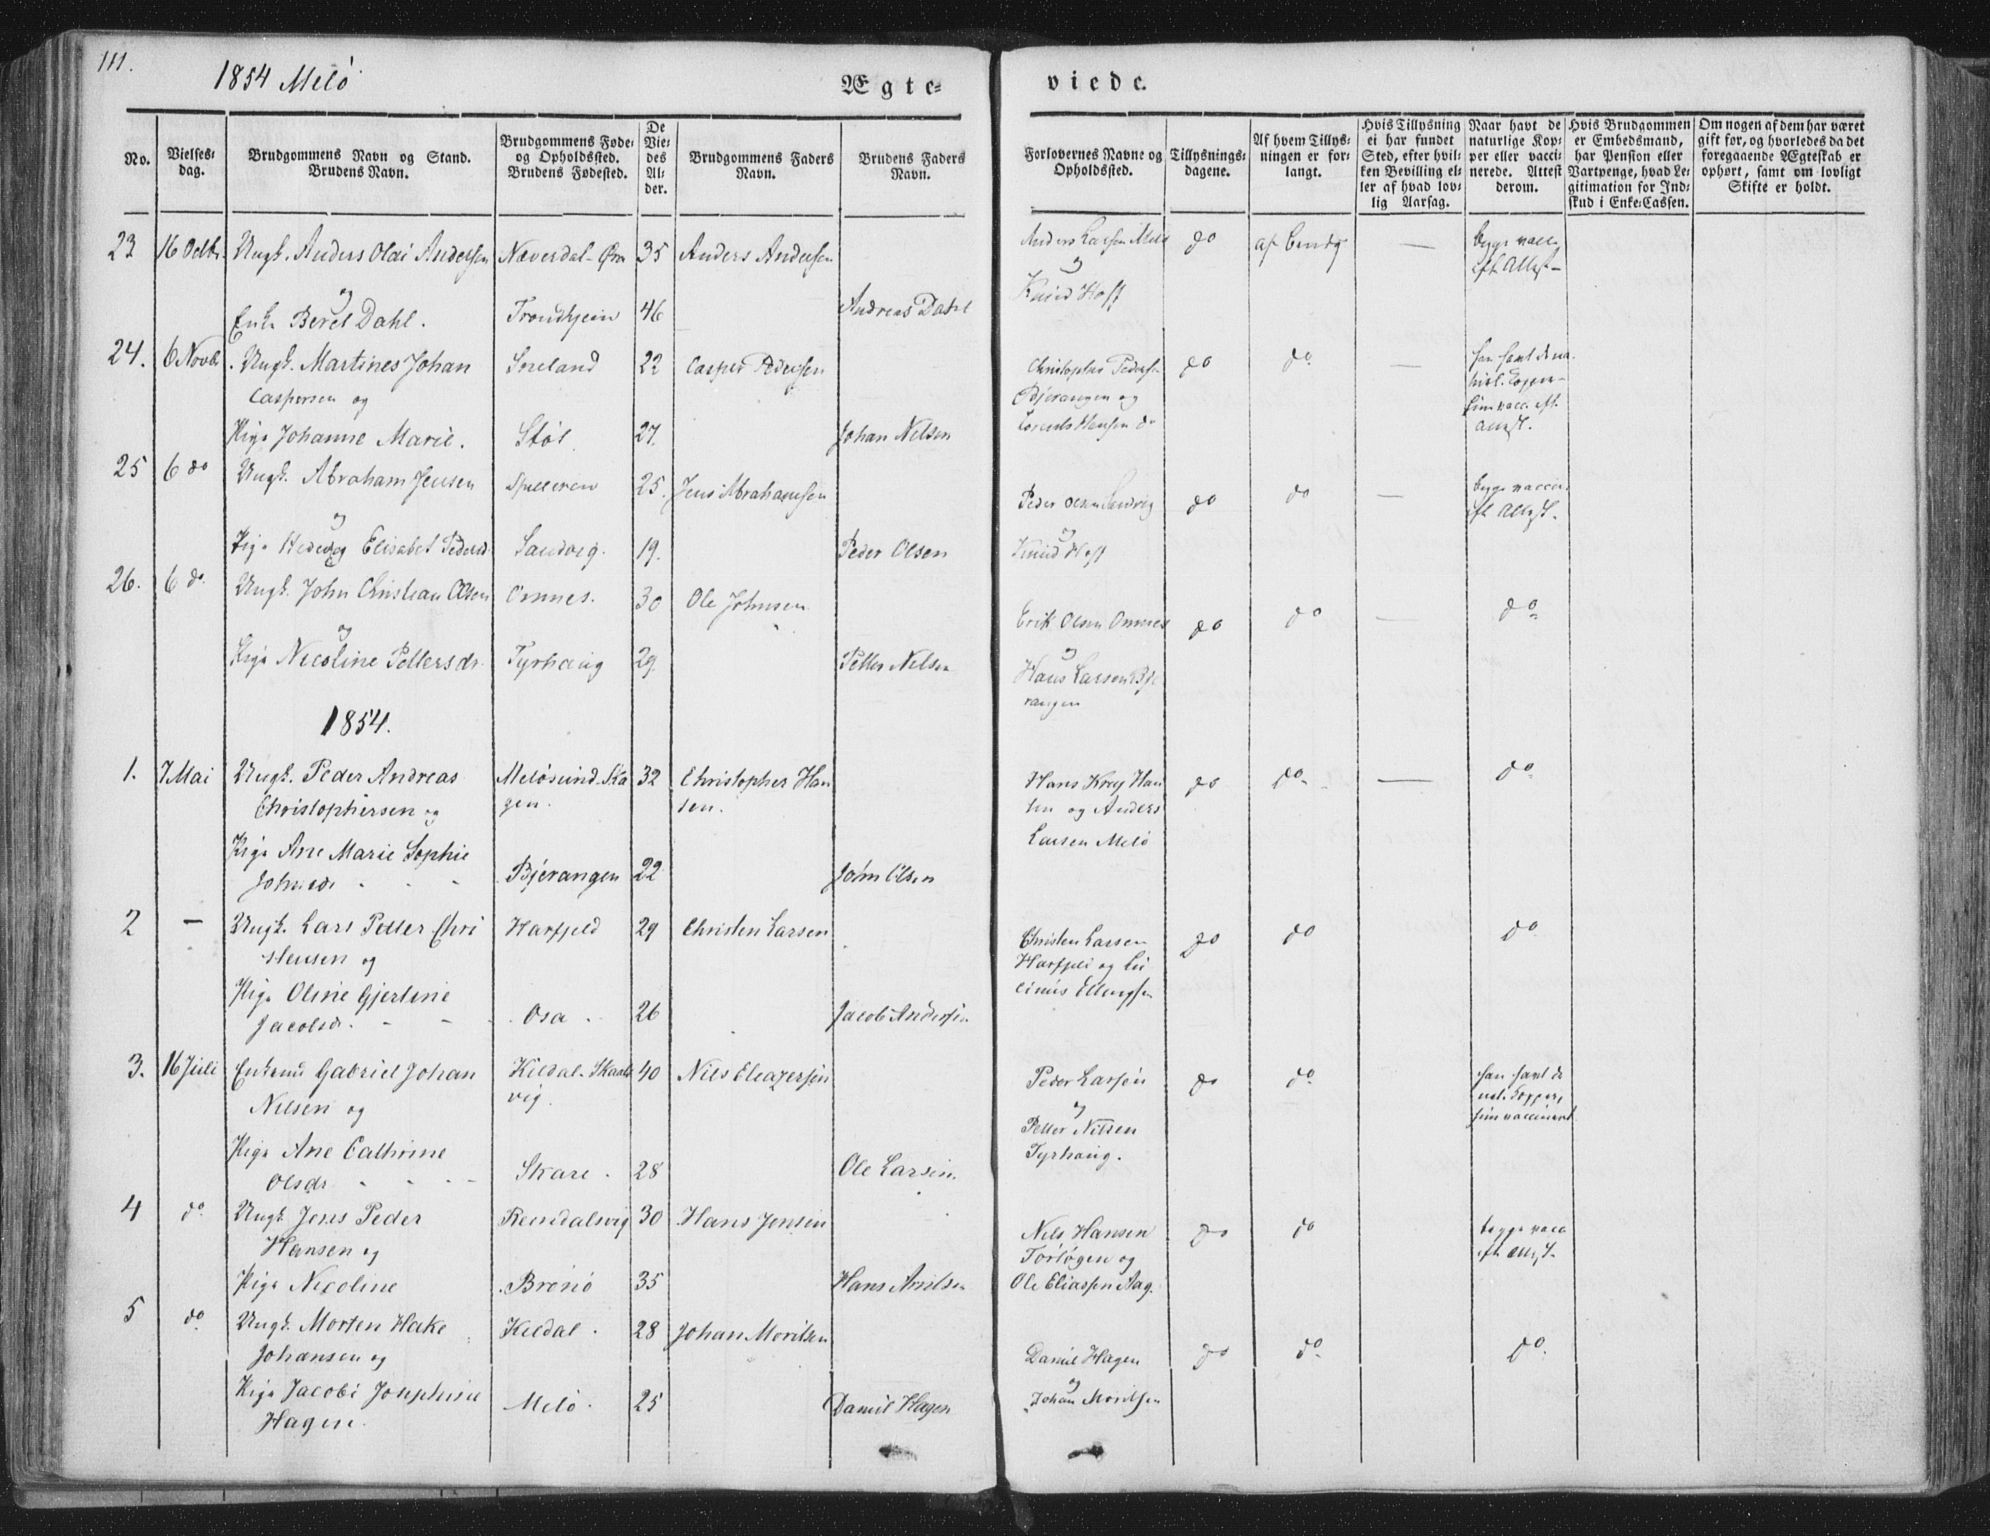 111.
1854 Melö
Ægte-
viede.
No.
Vielses-
dag.
Brudgommens Navn og Stand.
Brudens Navn.
Brudgommens Føde-
og Opholdssted.
Brudens Fødested.
De
Vie-
des
Al-
der.
Brudgommens Faders
Navn.
Brudens Faders
Navn.
Forlovernes Navne og
Opholdssted.
Tillysnings-
dagene.
Af hvem Tillys-
ningen er for-
langt.
Hvis Tillysning
ei har fundet
Sted, efter hvil-
ken Bevilling el-
ler af hvad lov-
lig Aarsag.
Naar havt de
naturlige Kop-
per eller vacci-
nerede. Attest
derom.
Hvis Brudgommen
er Embedsmand,
har Pension eller
Vartpenge, hvad Le-
gitimation for Ind-
skud i Enke-Cassen.
Om nogen af dem har været
gift før, og hvorledes da det
foregaaende Ægteskab er
ophørt, samt om lovligt
Skifte er holdt.
23 16 Octbr. Ungk. Anders Olai Andersen Næverdal 35 Anders Andersen Anders Larsen Melö do af Brudg — begge vacc.
eft. Attest
og
Knud Hoff
Enke Beret Dahl. Trondhjem 46 Andreas Dahl
24. 6 Novb. Ungk. Martines Johan Soreland 22 Casper Pedersen Christopher Peders. do do — han havt de na-
Caspersen og Bjerangen og
hun vacc. eft.
Attest.
Pige Johanne Marie. Stöt 27. Johan Nilsen Hansen do
25 6 do Ungk. Abraham Jensen 25. Jens Abrahamsen Peder Olsen Sandvig do do — begge vaccin.
eft. Attest.
og
Pige Hedevig Elisabet Pedersd. Sandvig. 19. Peder Olsen Knud Hoff
26. 6 do Ungk. John Christian Olsen Ornnes. 30 Ole Johnsen Erik Olsen Ornnes do do — do
og
Pige Nicoline Pettersdr. Tyrhaug 29. Petter Nilsen Hans Larsen Bje-
rangen
1854.
1. 7 Mai Ungk. Peder Andreas Melösund-Ska 32 Christopher Han Hans Krey Han do do — do
Christophersen og gen. sen. sen og Anders
Larsen Melö
Pige Ane Marie Sophie
Johnsdr Bjerangen 22 John Olsen
2 — Ungk. Lars Petter Chri Harfjeld 29 Christen Larsen Christen Larsen do do do
stensen og Harfjeld og
Ellingsen
Pige Oline Gjertine
Jacobsdr. Osa 26 Jacob Andersen
3. 16 Juli Enkemd Gabriel Johan Kildal-Skaals 40 Nils Eleazersen Peder Larsen do do han havt de
Nilsen og vig. nat. Kopper,
hun vaccineret
og
Petter Nilsen
Tyrhaug.
Pige Ane Cathrine
Olsdr Skare 28 Ole Larsen
4 do Ungk Jens Peder Rendalsvig 30 Hans Jensen Nils Hansen do do begge vacc
Hansen og Torlögen og eft. Attest
Pige Nicoline Brenö 35 Hans Ole Eliassen Aag.
5 do Ungk. Morten Hake Kildal 28 Johan Moritsen Daniel Hagen do do do.
Johansen og
og
Johan Moritsen
Pige Jacobi Josephine Melö 25 Daniel Hagen
Hagen.